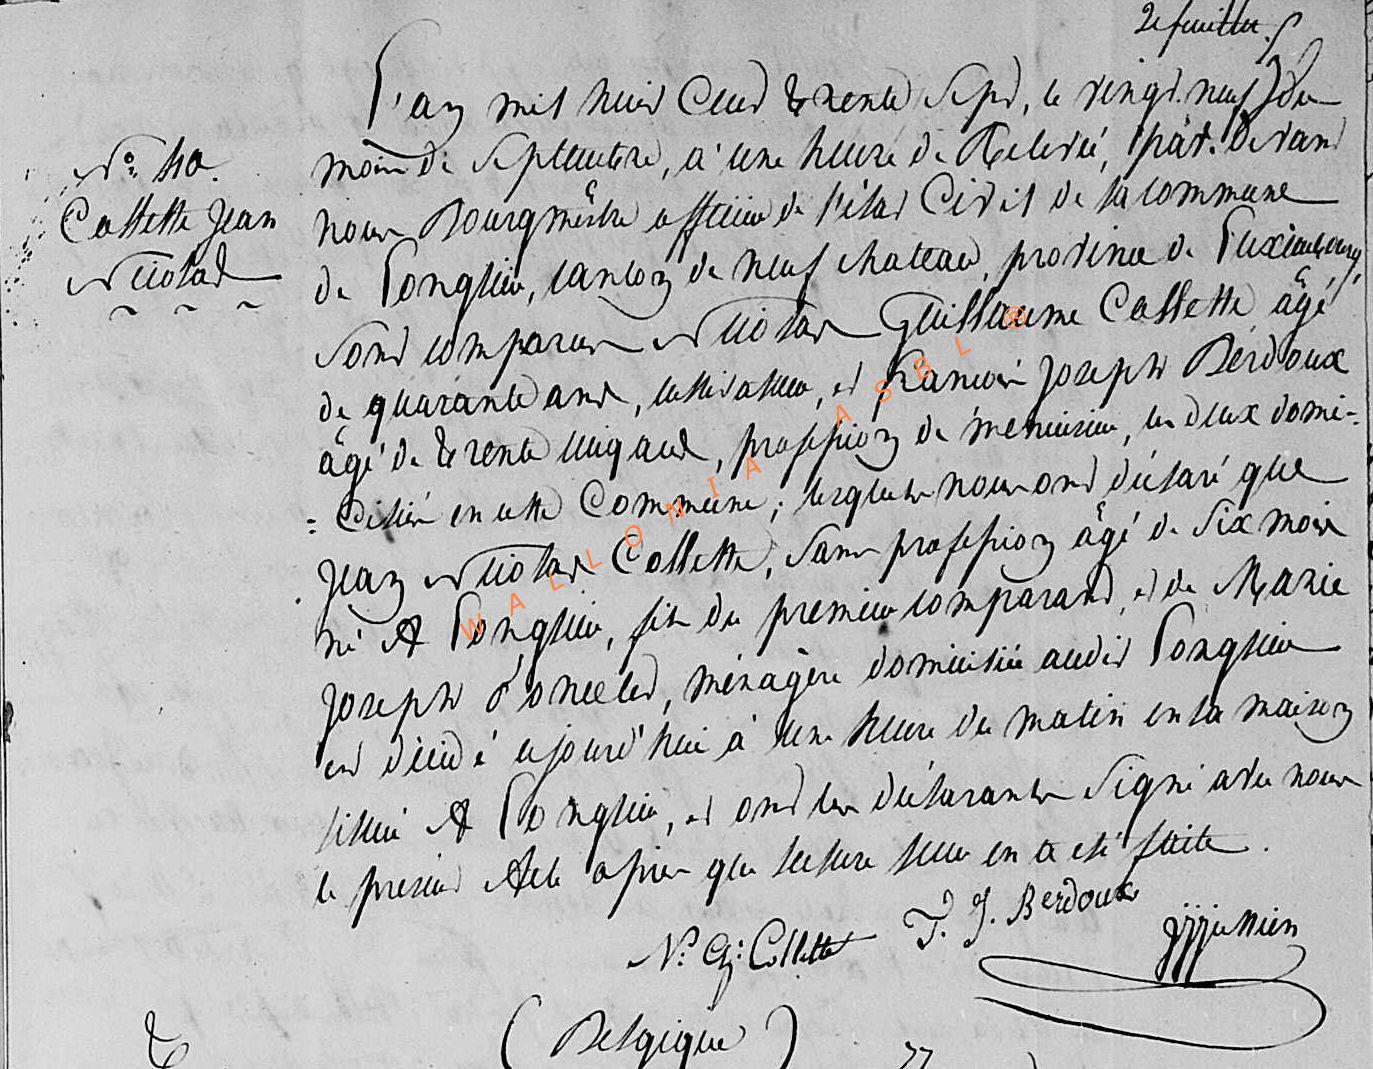 2e feuillet.
L'an mil huit Cent trente Sept, le vingt-neuf du
N.o 40.
mois de Septembre, à une heure de Relevée, par-devant
Collette Jean
nous Bourgmestre officier de l'état Civil de la commune
Nicolas
de Longlier, canton de neufchateau, province de Luxembourg,
Sont comparus Nicolas Guillaume Collette âgé
de quarante ans, cultivateur, et François Joseph Berdoux
âgé de trente cinq ans, profession de menuisier, les deux domi-
= ciliés en cette Commune; lesquels nous ont déclaré que
Jean Nicolas Collette, Sans profession âgé de Six mois
né A Longlier, fils du premier comparant, et de Marie
Joseph Poncelet, ménagère domiciliée audit Longlier
est décédé cejourd'hui à une heure du matin en sa maison
située A Longlier, et ont les déclarants Signé avec nous
le présent Acte après que lecture leur en a été faite.
N.s G.e Collette F. J. Berdoux
(Belgique)
WALLONIA ASBL ®